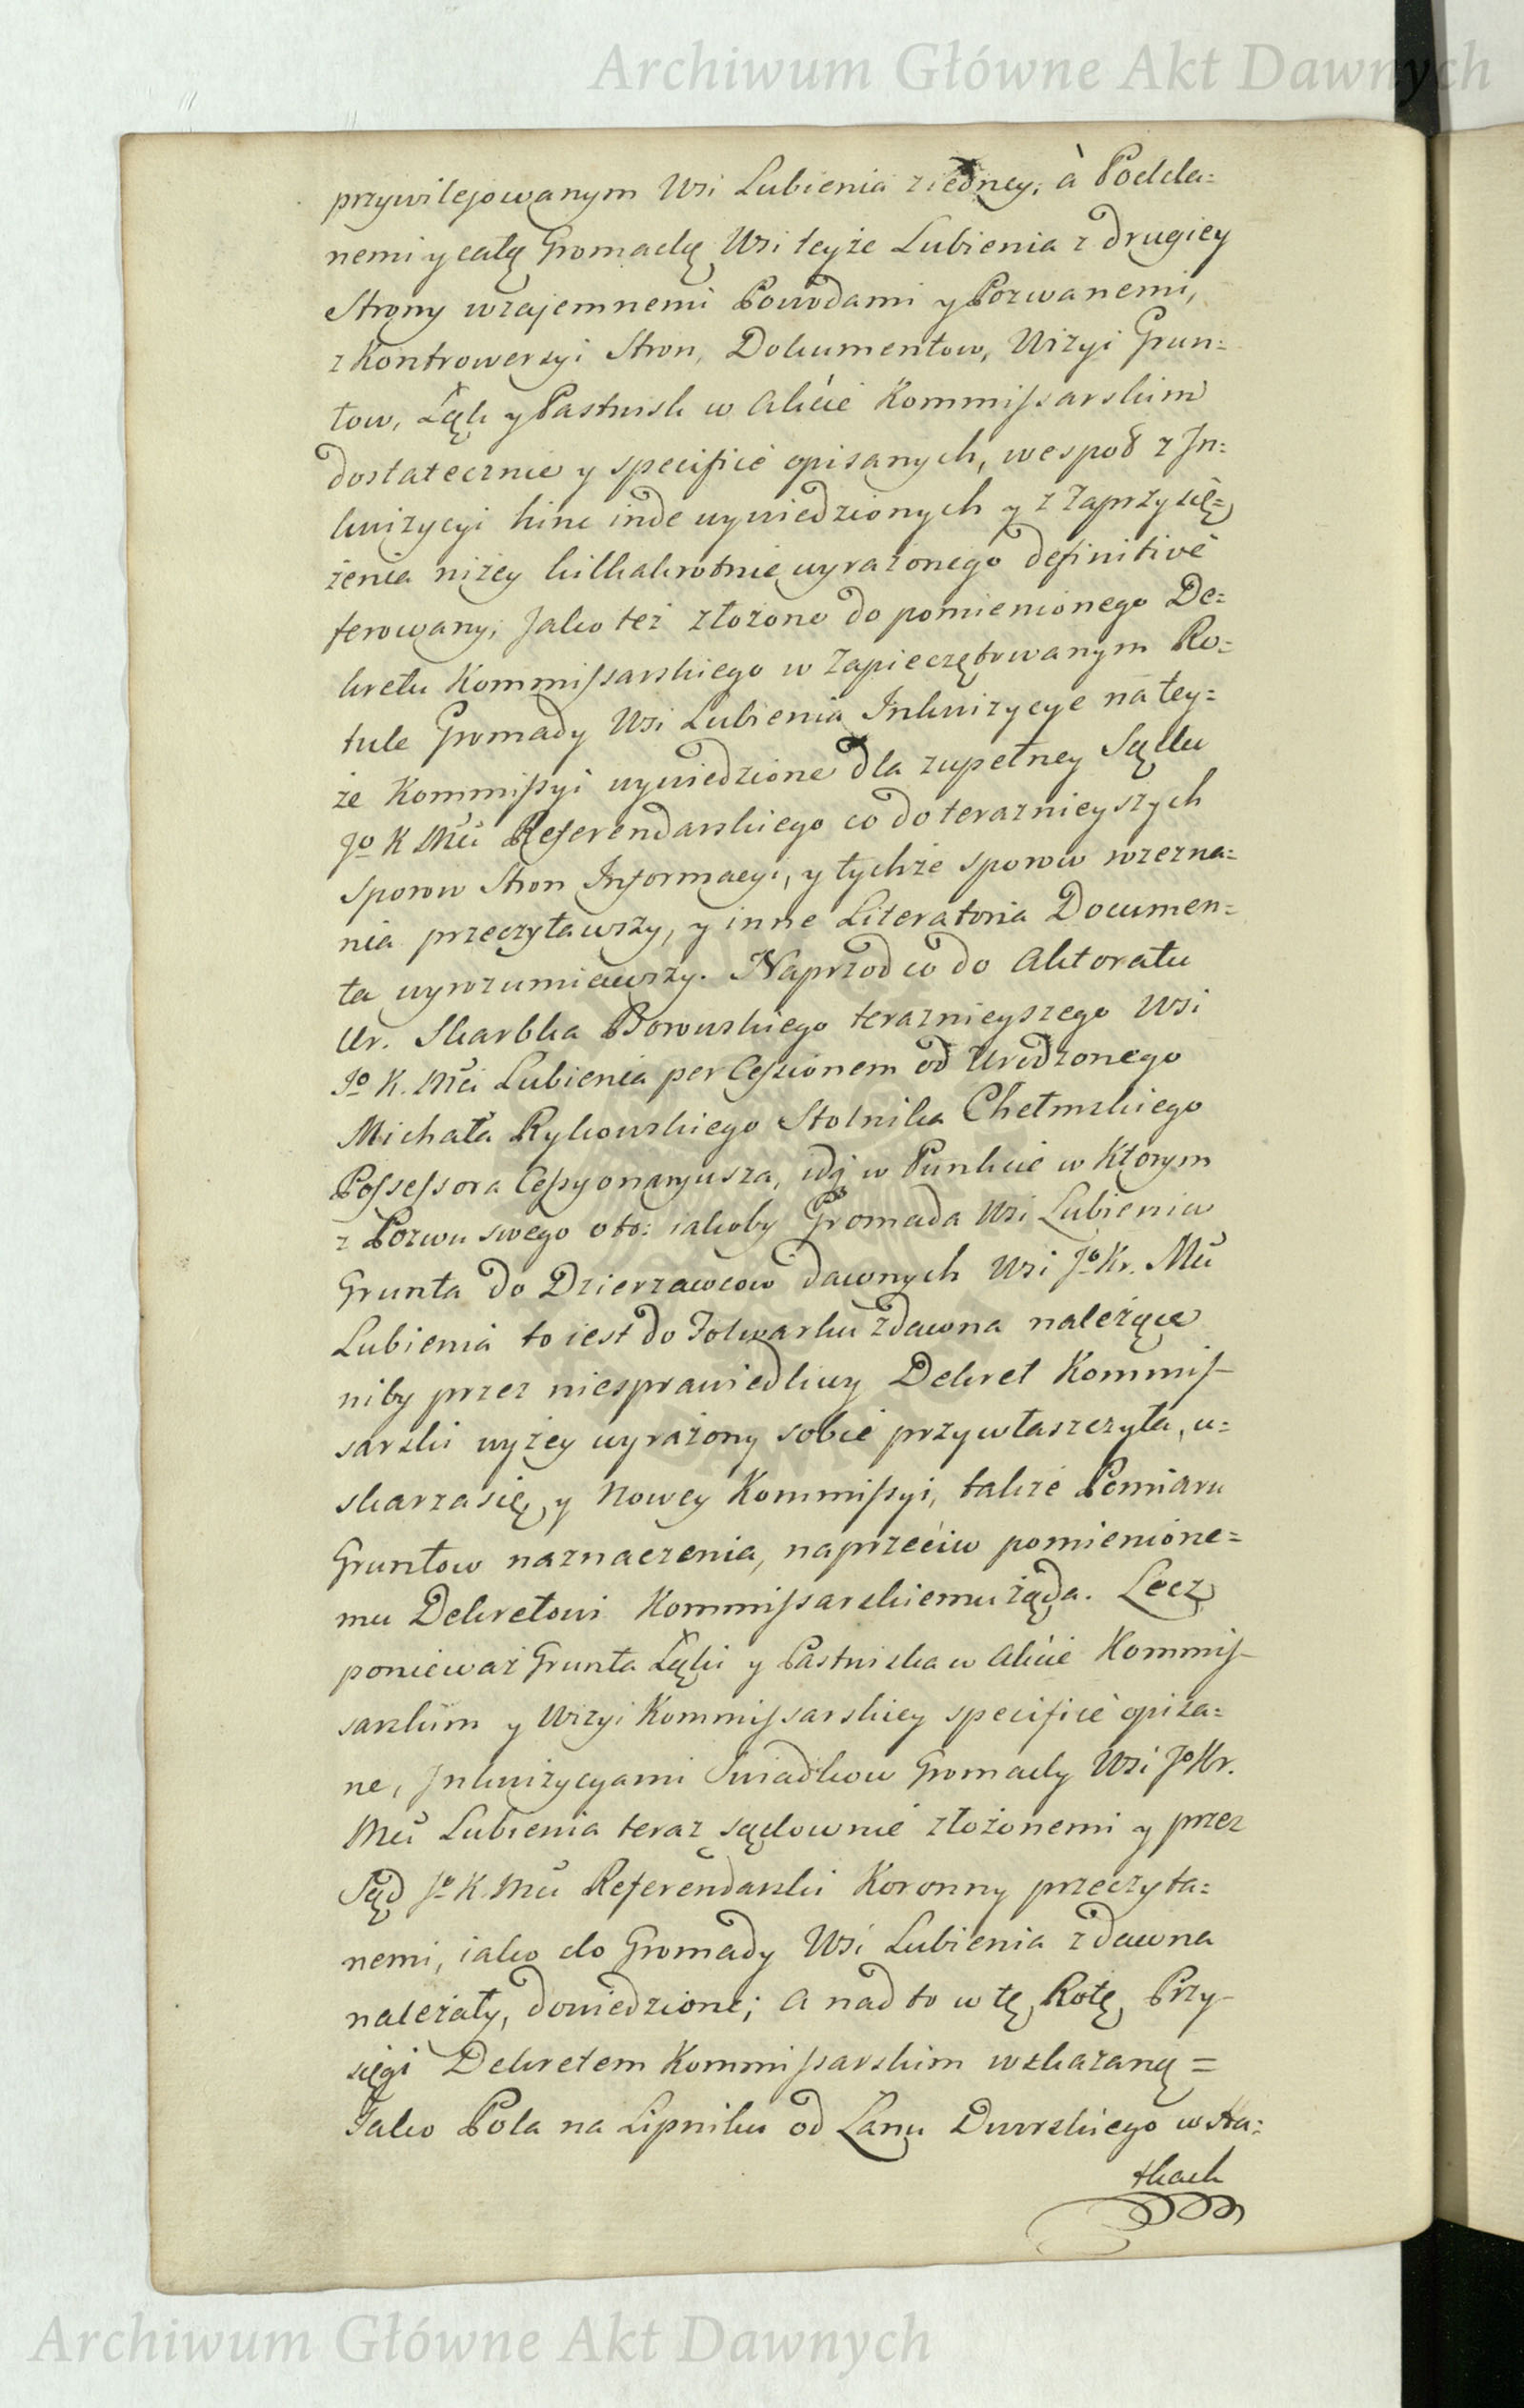 Archiwum Główne Akt Dawnych
przywilejowanym Wsi Lubienia ziedney, à Podda=
nemi y całą Gromadą Wsi teyże Lubienia z drugiey
Strony wzajemnemi Powodami y Pozwanemi,
z Kontrowersyi Stron, Dokumentow, Wizyi Grun=
tow, Łąk y Pastwisk w Akcie Kommissarskim
dostatecznie y specificè opisanych, wespoł z In=
kwizycyi hinc inde wywiedzionych y z Zaprzysię=
żenia niżey kilkakrotnie wyrażonego definitivè
ferowany, Jako też złożone do pomienionego De=
kretu Kommissarskiego w Zapieczętowanym Ro=
tule Gromady Wsi Lubienia Inkwizycye na tey=
że Kommissyi wywiedzione dla zupełney Sądu
Jo K Mci Referendarskiego co do teraznieyszych
sporow Stron Informacyi, y tychże sporow wzezna=
nia przeczytawszy, y inne Literatoria Documen=
ta wyrozumiawszy. Naprzod co do Aktoratu
Ur. Skarbka Borowskiego teraznieyszego Wsi
Jo K. Mci Lubienia per Cessionem od Urodzonego
Michała Rykowskiego Stolnika Chełmskiego
Possessora Cessyonaryusza, idą w Punkcie w Ktorym
z Pozwu swego oto: iakoby Gromada Wsi Lubienia
Grunta do Dzierzawcow dawnych Wsi Jo Kr. Mci
Lubienia to iest do Folwarku zdawna należące
niby przez niesprawiedliwy Dekret Kommis-
sarski wyżey wyrażony sobie przywłaszczyła, u=
skarza się, y Nowey Kommissyi, także Pomiaru
Gruntow naznaczenia, naprzeciw pomienione=
mu Dekretowi Kommissarskiemu żąda. Lecz
ponieważ Grunta Łąki y Pastwiska w Akcie Kommis-
sarskim y Wizyi Kommissarskiey specificè opisa=
ne, Inkwizycyami Swiadkow Gromady Wsi Jo Kr.
Mci Lubienia teraz sądownie złożonemi y przez
Sąd Jo K Mci Referendarski Koronny przeczyta=
nemi, iako do Gromady Wsi Lubienia zdawna
należały, dowiedzione; A nad to w tę Rotę Przy-
sięgi Dekretem Kommissarskim wskazaną =
Jako Pola na Lipniku od Łanu Dworskiego w Sta=
tkach
Archiwum Główne Akt Dawnych